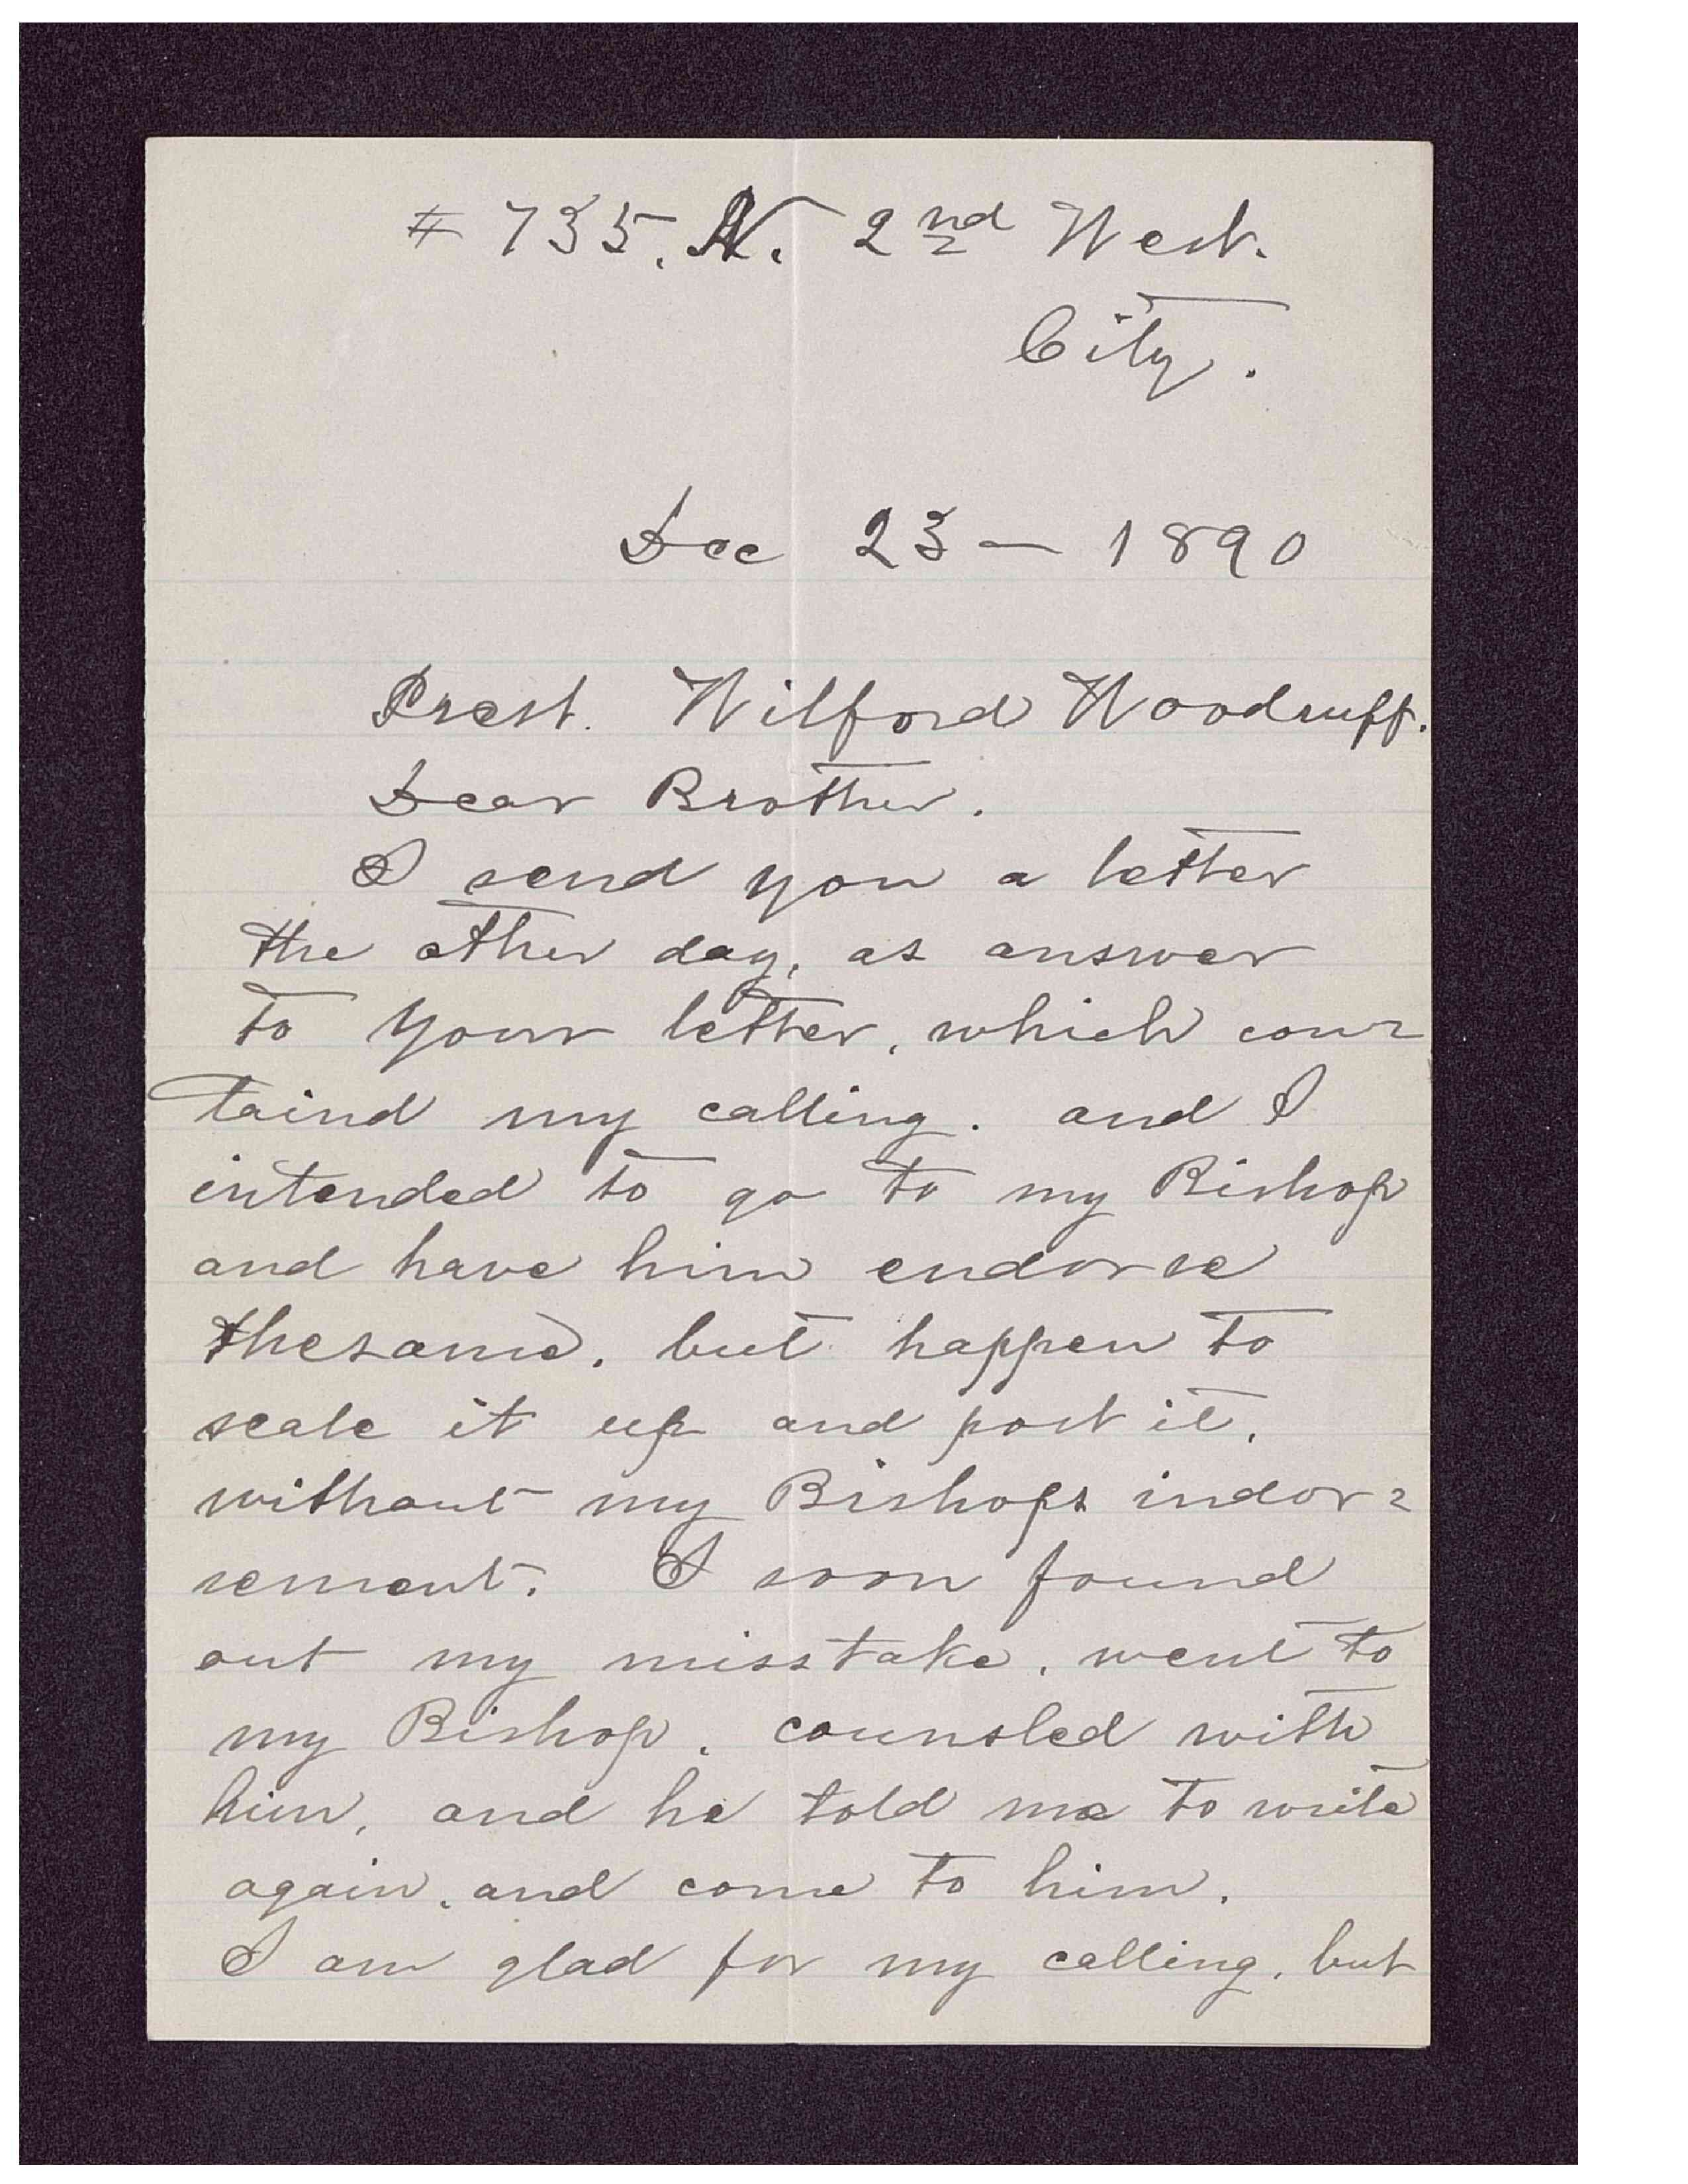 # 735. N. 2nd West.
City.
Dec 23 — 1890
Prest. Wilford Woodruff.
Dear Brother.
I send you a letter
the other day, as answer
to Your letter, which con=
taind my calling. and I
intended to go to my Bishop
and have him endorse
thesame, but happen to
seale it up and post it,
without my Bishops indor=
sement. I soon found
out my misstake, went to
my Bishop, counsled with
him, and he told me to write
again, and come to him.
I am glad for my calling, but